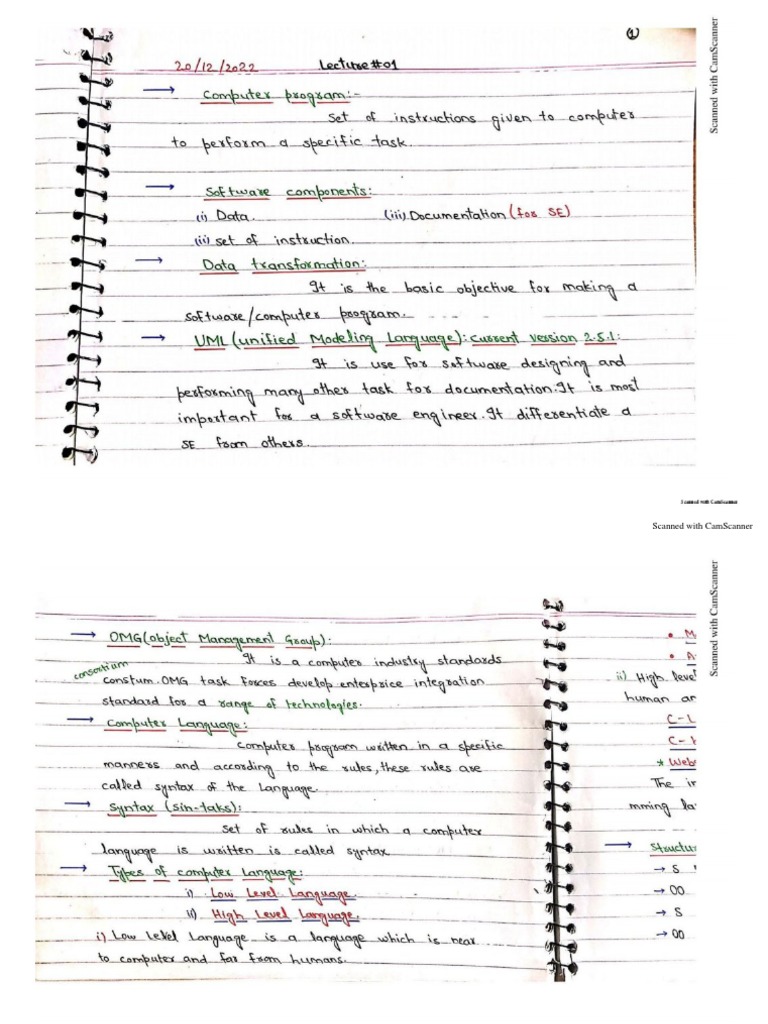 ①
20/12/2022 Lecture#01
→ Computer program:-
Set of instructions given to computer
to perform a specific task.
→ Software components:
(i) Data. (iii) Documentation (for SE)
(ii) set of instruction.
→ Data transformation:
It is the basic objective for making a
software/computer program.
→ UML (unified Modeling Language): current version 2.5.1:
It is use for software designing and
performing many other task for documentation. It is most
important for a software engineer. It differentiate a
SE from others.
Scanned with CamScanner
Scanned with CamScanner
Scanned with CamScanner
→ OMG(object Management Group):
It is a computer industry standards
consortium
constum. OMG task forces develop enterprice integration
standard for a range of technologies.
→ Computer Language:
Computer program written in a specific
manners and according to the rules, these rules are
called syntax of the Language.
→ Syntax (sin-taks):
set of rules in which a computer
language is written is called syntax
→ Types of computer Language:
i) Low Level Language.
ii) High Level Language.
i) Low Level Language is a language which is near
to computer and far from humans.
• M
• A
ii) High level
human ar
C-L
C-
* Web
The ir
mming la
→ Structu
→ S
→ OO
→ S
→ OO
Scanned with CamScanner